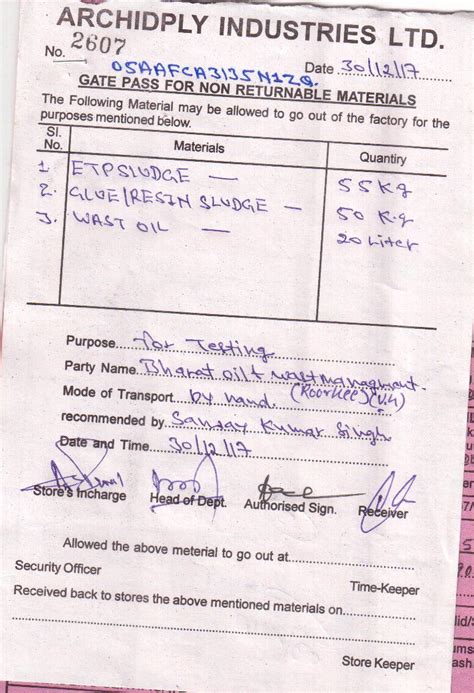 ARCHIDPLY INDUSTRIES LTD.
No. 2607
Date 30/12/17
05AAFCA3135N1ZQ.
GATE PASS FOR NON RETURNABLE MATERIALS
The Following Material may be allowed to go out of the factory for the
purposes mentioned below.
Sl. No. Materials Quantity
1. ETPSLUDGE — 55 Kg
2. GLUE/RESIN SLUDGE — 50 Kg
3. WAST OIL — 20 Liter
Purpose....for Testing
Party Name. Bharat oil & wast managment.
(Roorkee)(U.K)
Mode of Transport....by hand.
recommended by. Sanjay Kumar Singh
Date and Time....30/12/17
Store's Incharge Head of Dept. Authorised Sign. Receiver
Allowed the above meterial to go out at
Security Officer
Time-Keeper
Received back to stores the above mentioned materials on
Store Keeper